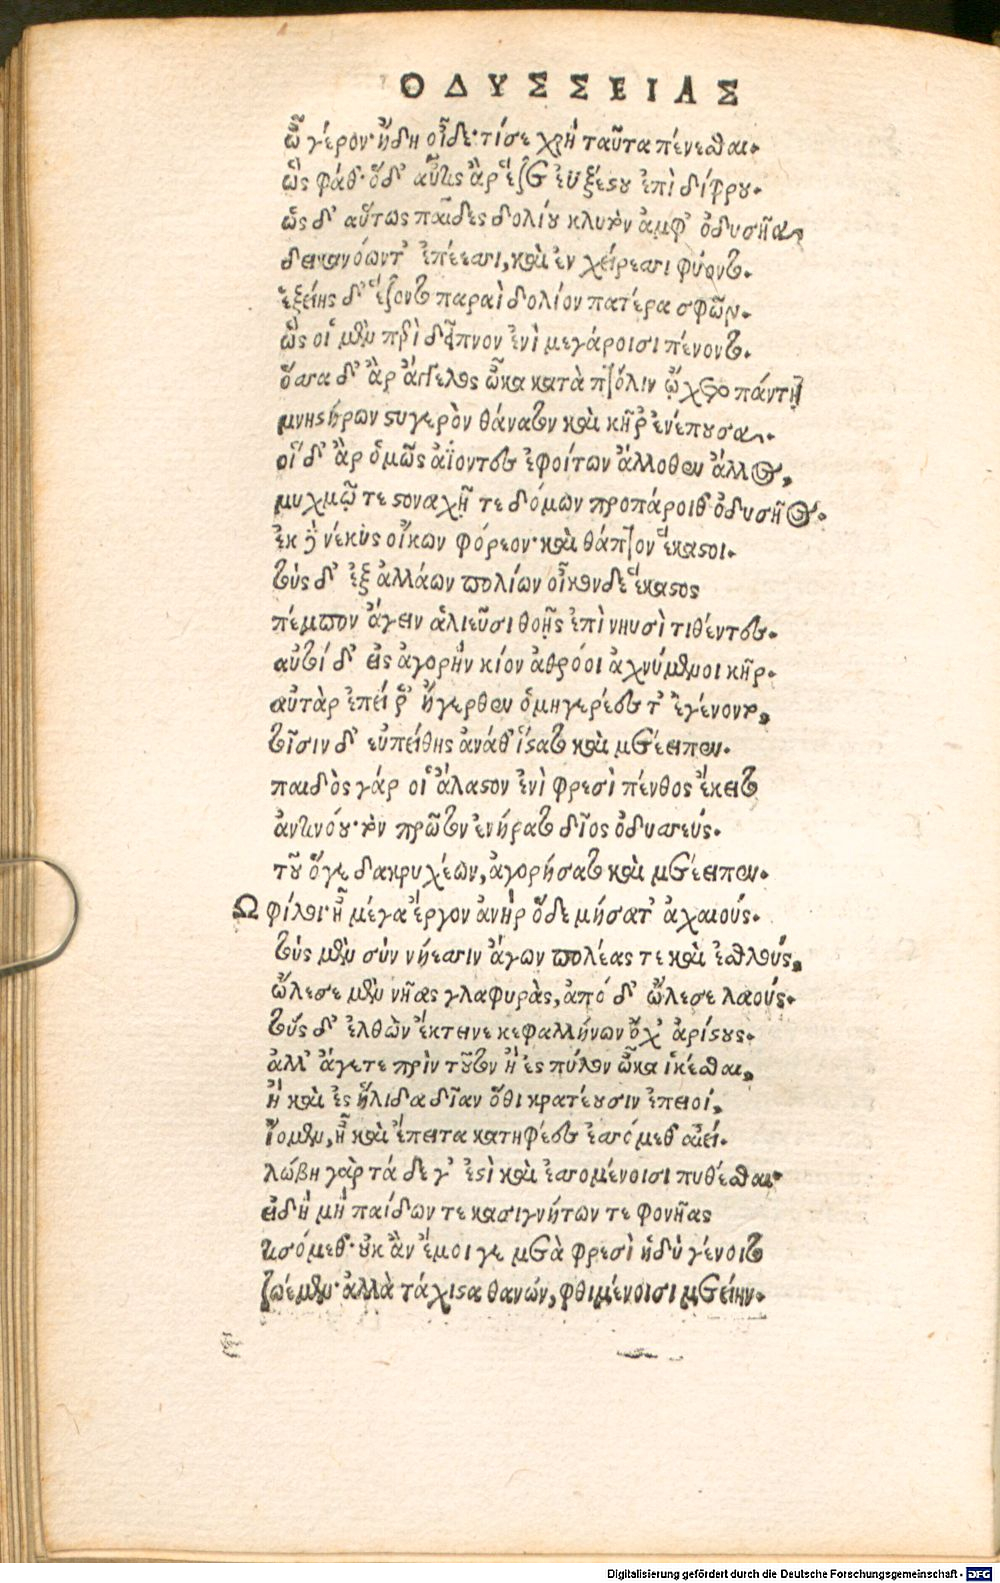 ΟΔΥΣΣΕΙΑΣ
ὦ γέρον· ἤδη οἶδε· τί σε χρὴ ταῦτα πένεσθαι.
ὣς φάθ'· ὁ δ' αὖτις ἂρ ἕζετο ἐϋξέστου ἐπὶ δίφρου.
ὣς δ' αὔτως παῖδες δολίου κλυτὸν ἀμφ' ὀδυσῆα,
δεικανόωντ' ἐπέεσσι, καὶ ἐν χείρεσσι φύοντο.
ἑξείης δ' ἕζοντο παραὶ δολίον πατέρα σφῶν.
ὣς οἱ μὲν περὶ δεῖπνον ἐνὶ μεγάροισι πένοντο.
ὄσσα δ' ἂρ ἄγγελος ὦκα κατὰ πτόλιν ᾤχετο πάντῃ
μνηστήρων στυγερὸν θάνατον καὶ κῆρ' ἐνέπουσα.
οἱ δ' ἂρ ὁμῶς ἀΐοντες ἐφοίτων ἄλλοθεν ἄλλος,
μυχμῷ τε στοναχῇ τε δόμων προπάροιθ' ὀδυσῆος.
ἐκ δὲ νέκυς οἴκων φόρεον· καὶ θάπτον ἕκαστοι.
τοὺς δ' ἐξ ἀλλάων πολίων οἶκον δὲ ἕκαστος
πέμπον ἄγειν ἁλιεῦσι θοῇς ἐπὶ νηυσὶ τιθέντες.
αὐτοί δ' εἰς ἀγορὴν κίον ἀθρόοι ἀχνύμενοι κῆρ.
αὐτὰρ ἐπεί ῥ' ἤγερθεν ὁμηγερέες τ' ἐγένοντο,
τοῖσιν δ' εὐπείθης ἀνάθ' ἵστατο καὶ μετέειπεν.
παιδὸς γάρ οἱ ἄλαστον ἐνὶ φρεσὶ πένθος ἔκειτο
ἀντινόου· τὸν πρῶτον ἐνήρατο δῖος ὀδυσσεύς.
τοῦ ὅγε δακρυχέων, ἀγορήσατο καὶ μετέειπεν.
Ω φίλοι· ἦ μέγα ἔργον ἀνὴρ ὅδε μήσατ' ἀχαιούς.
τοὺς μὲν σὺν νήεσσιν ἄγων πολέας τε καὶ ἐσθλούς,
ὤλεσε μὲν νῆας γλαφυρὰς, ἀπό δ' ὤλεσε λαούς.
τοὺς δ' ἐλθὼν ἔκτεινε κεφαλλήνων ὄχ' ἀρίστους.
ἀλλ' ἄγετε πρὶν τοῦτον ἢ ἐς πύλον ὦκα ἱκέσθαι,
ἢ καὶ ἐς ἤλιδα δῖαν ὅθι κρατέουσιν ἐπειοί,
ἴομεν, ἦ καὶ ἔπειτα κατηφέες ἐσσόμεθ' αἰεί.
λώβη γὰρ τά δε γ' ἐστὶ καὶ ἐσσομένοισι πυθέσθαι
εἰ δὴ μὴ παίδων τε κασιγνήτων τε φονῆας
τισόμεθ'· οὐκ ἂν ἔμοι γε μετὰ φρεσὶ ἡδὺ γένοιτο
ζωέμεν· ἀλλὰ τάχιστα θανών, φθιμένοισι μετείην.
Digitalisierung gefördert durch die Deutsche Forschungsgemeinschaft - DFG